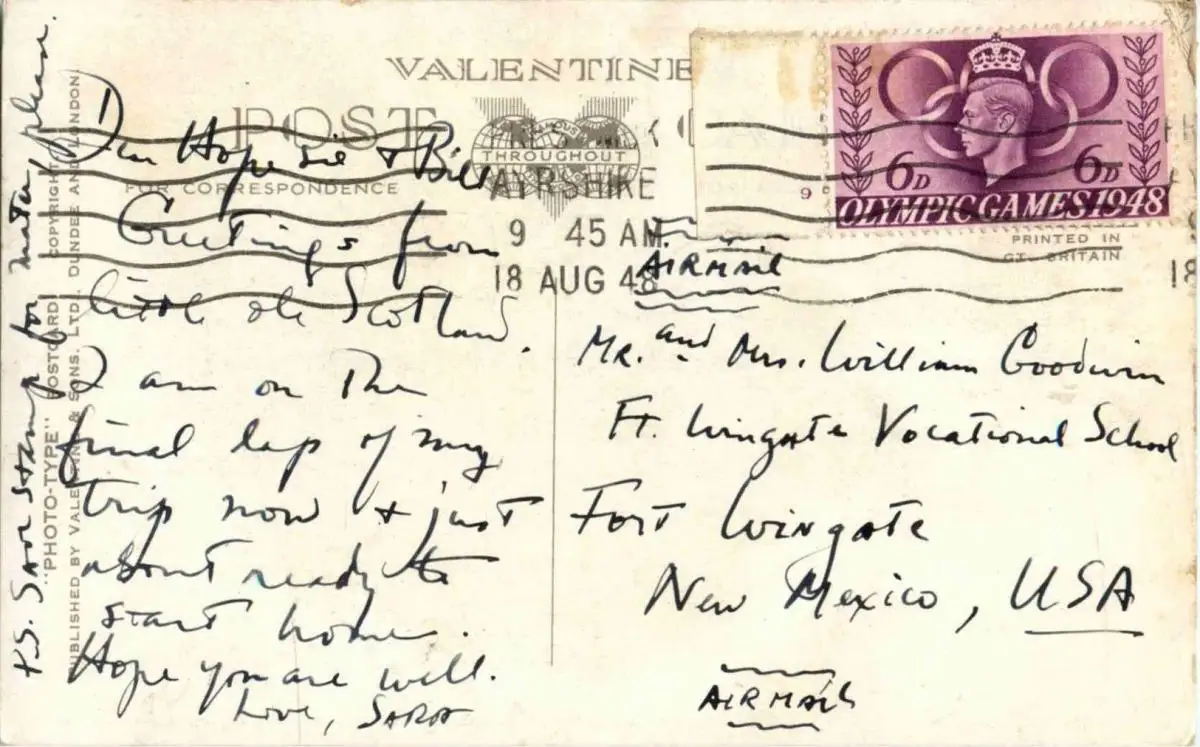 VALENTINE
POST CA
FAMOUS
THROUGHOUT
FOR CORRESPONDENCE
AYRSHIRE
9 45 AM
18 AUG 48
18
9
6D 6D
OLYMPIC GAMES 1948
PRINTED IN
GT. BRITAIN
"PHOTO-TYPE" POSTCARD COPYRIGHT
PUBLISHED BY VALENTINE & SONS, LTD. DUNDEE AND LONDON
P.S. Save stamp for mater please.
Dear Hope sie + Bill
Greetings from
little ole Scotland.
I am on the
final lap of my
trip now + just
about ready to
start home.
Hope you are well.
Love, SARA
AIRMAIL
Mr. and Mrs. William Goodwin
Ft. Wingate Vocational School
Fort Wingate
New Mexico, USA
AIRMAIL